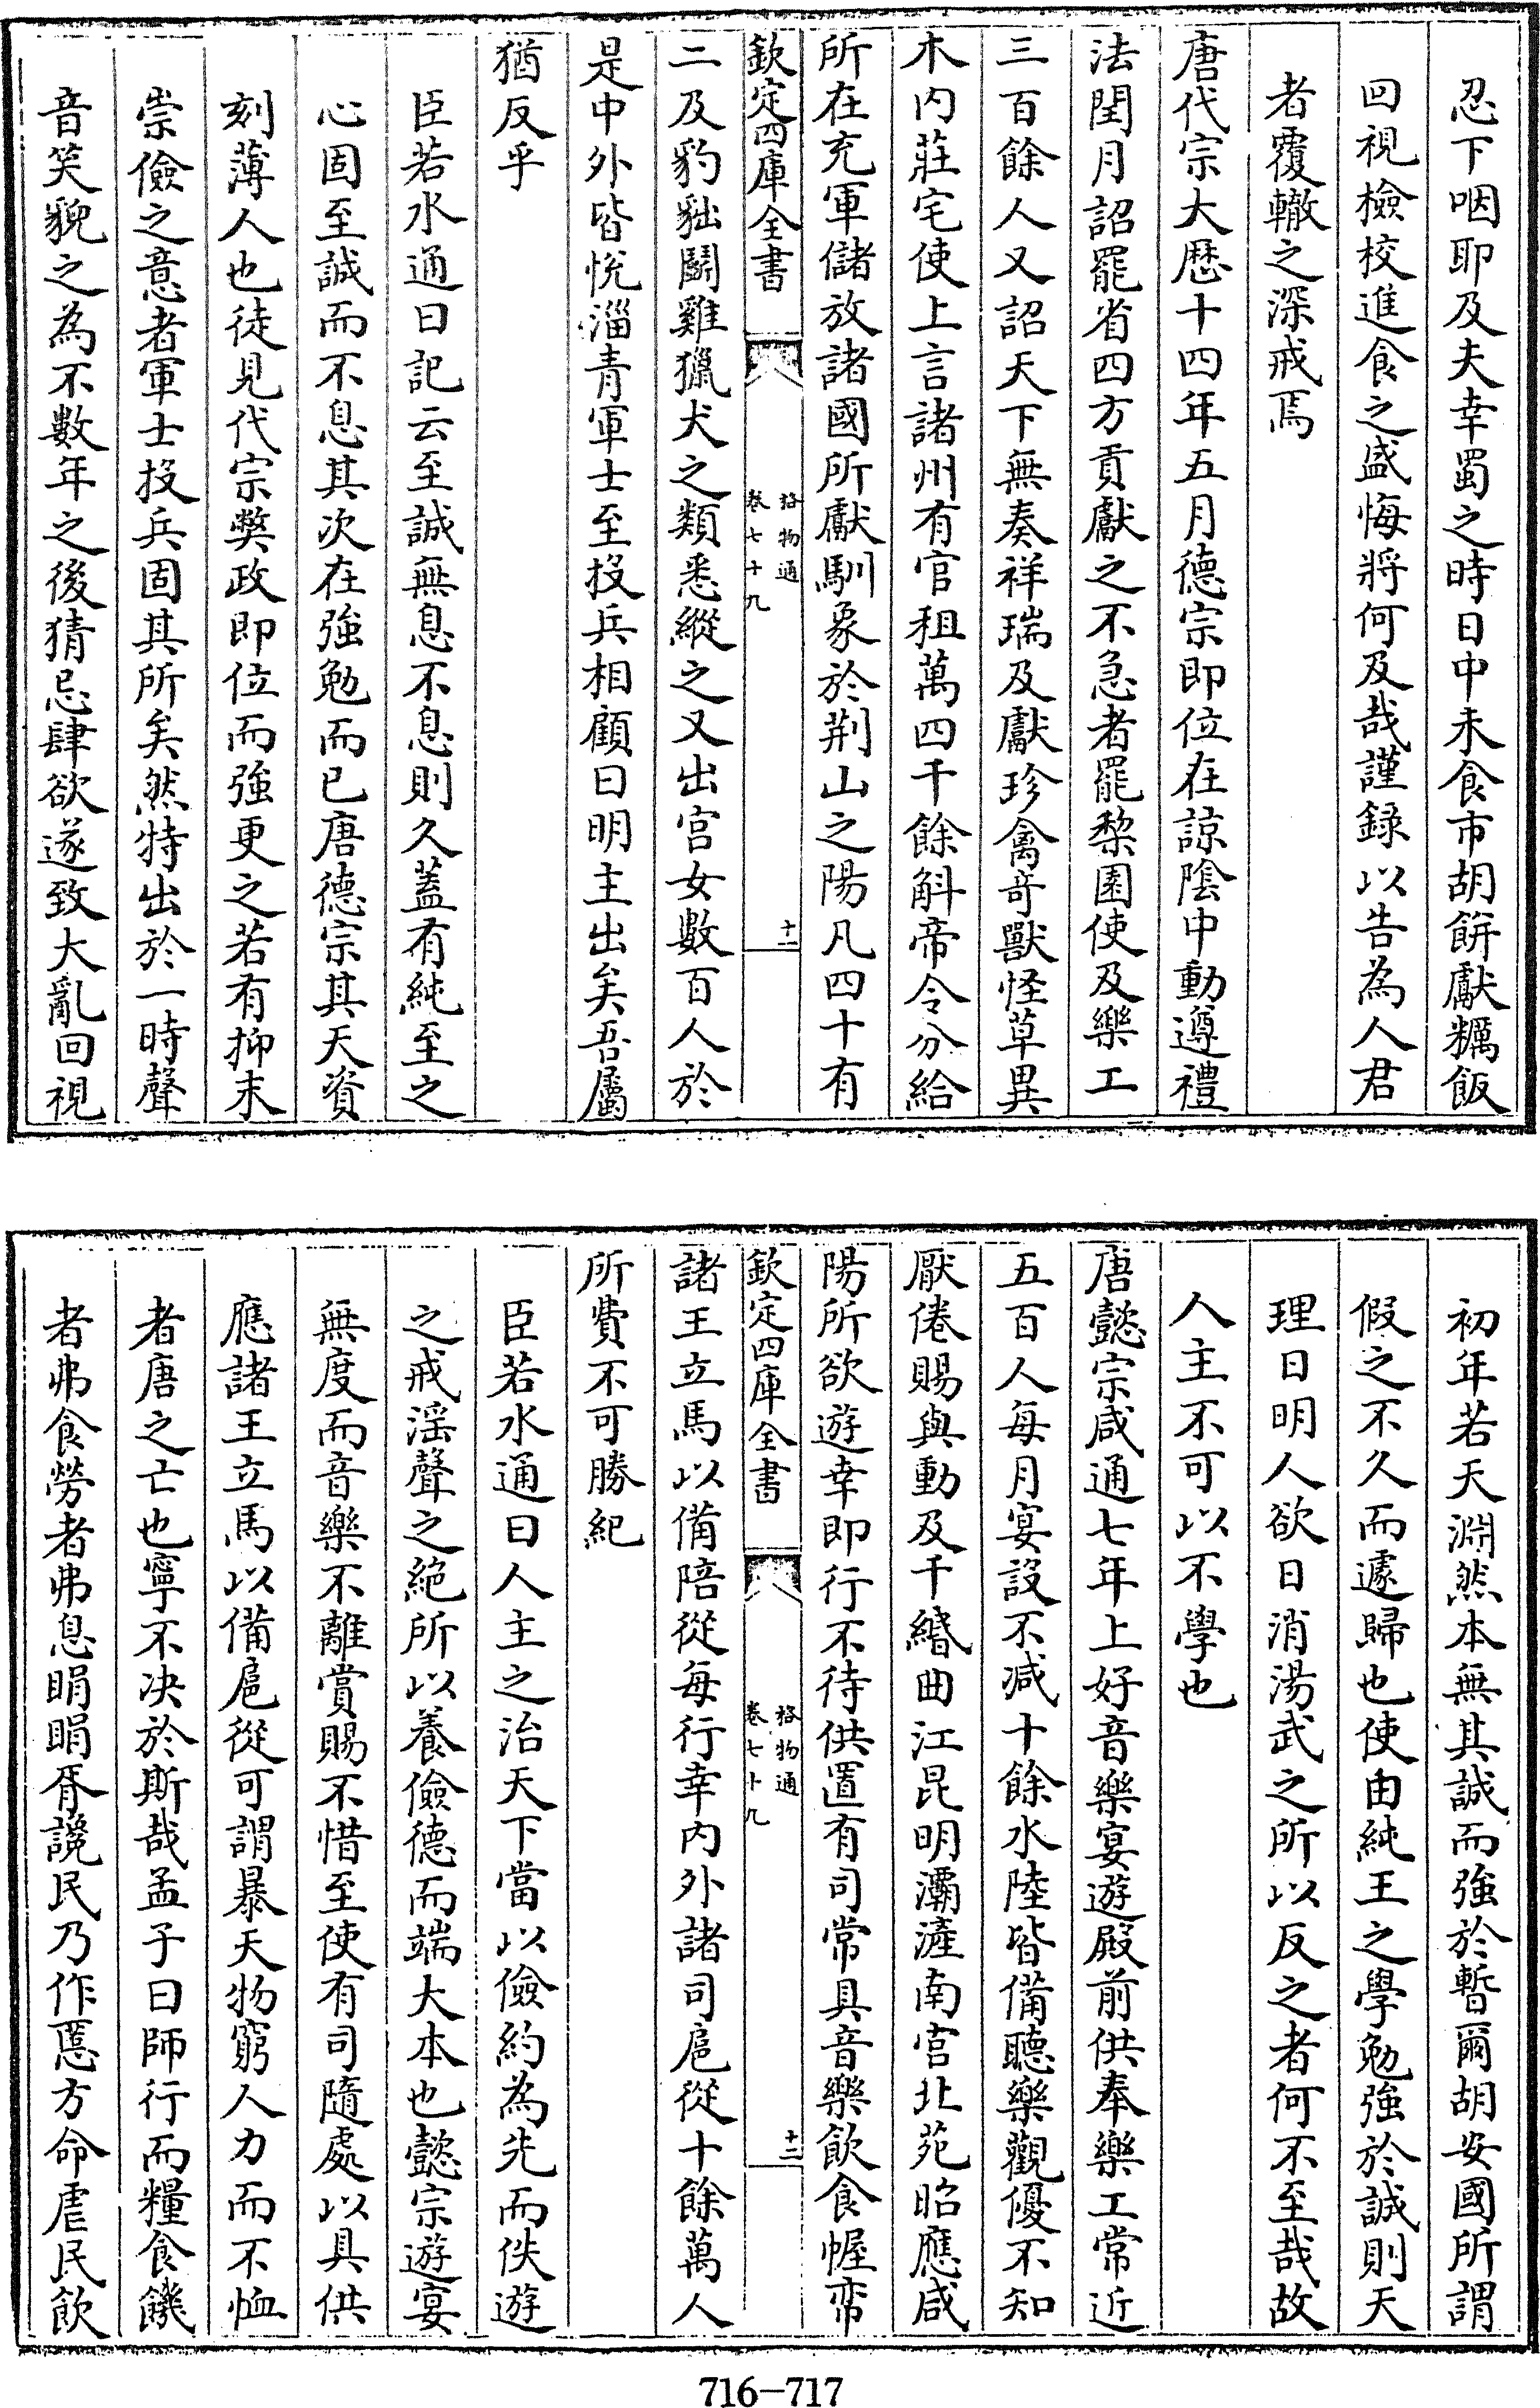 忍下咽耶及夫幸蜀之時日中未食市胡餅獻糲飯
回視檢校進食之盛悔將何及哉謹錄以告為人君
者覆轍之深戒焉
唐代宗大厯十四年五月德宗即位在諒隂中動遵禮
法閏月詔罷省四方貢獻之不急者罷棃園使及樂工
三百餘人又詔天下無奏祥瑞及獻珍禽奇獸怪草異
木内莊宅使上言諸州有官租萬四千餘斛帝令分給
所在充軍儲放諸國所獻馴象於荆山之陽凡四十有
欽定四庫全書
格物通
卷七十九
十一
二及豹貀鬭雞獵犬之類悉縱之又出宫女數百人於
是中外皆悦淄青軍士至投兵相顧曰明主出矣吾屬
猶反乎
臣若水通曰記云至誠無息不息則久蓋有純至之
心固至誠而不息其次在強勉而已唐德宗其天資
刻薄人也徒見代宗弊政即位而強更之若有抑末
崇儉之意者軍士投兵固其所矣然特出於一時聲
音笑貌之為不數年之後猜忌肆欲遂致大亂回視
初年若天淵然本無其誠而強於暫爾胡安國所謂
假之不久而遽歸也使由純王之學勉強於誠則天
理日明人欲日消湯武之所以反之者何不至哉故
人主不可以不學也
唐懿宗咸通七年上好音樂宴遊殿前供奉樂工常近
五百人每月宴設不减十餘水陸皆備聽樂觀優不知
厭倦賜與動及千緡曲江昆明灞滻南宫北苑昭應咸
陽所欲遊幸即行不待供置有司常具音樂飲食幄帟
欽定四庫全書
格物通
卷七十九
十二
諸王立馬以備陪從每行幸内外諸司扈從十餘萬人
所費不可勝紀
臣若水通曰人主之治天下當以儉約為先而佚遊
之戒淫聲之絶所以養儉德而端大本也懿宗遊宴
無度而音樂不離賞賜不惜至使有司隨處以具供
應諸王立馬以備扈從可謂暴天物窮人力而不恤
者唐之亡也寧不决於斯哉孟子曰師行而糧食饑
者弗食勞者弗息睊睊胥讒民乃作慝方命虐民飲
716-717